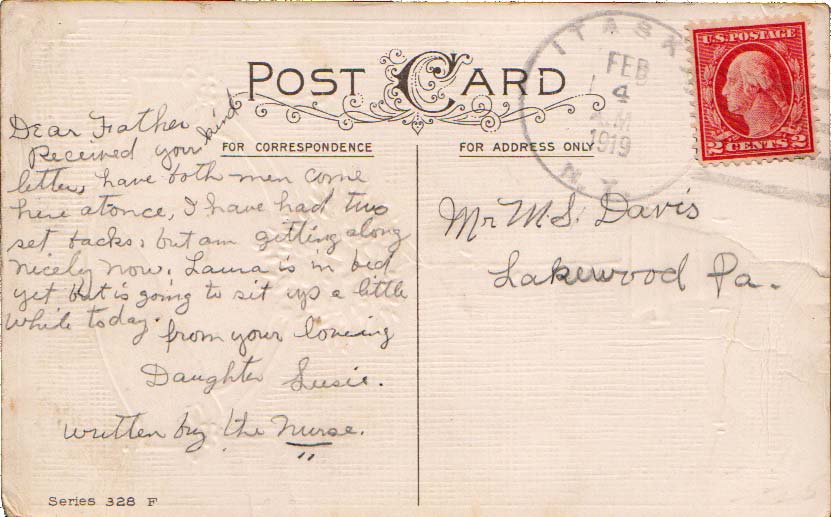 POST CARD
FOR CORRESPONDENCE
Dear Father
Received your kind
letter, have both men come
here atonce, I have had two
set backs; but am gitting along
nicely now. Laura is in bed
yet but is going to sit up a little
while today.
from your loveing
Daughter Susie.
written by the Nurse.
"
Series 328 F
FOR ADDRESS ONLY
Mr M.S. Davis
Lakewood Pa.
ITASKA
FEB
4
A.M
1919
N.Y.
U.S. POSTAGE
2 CENTS 2